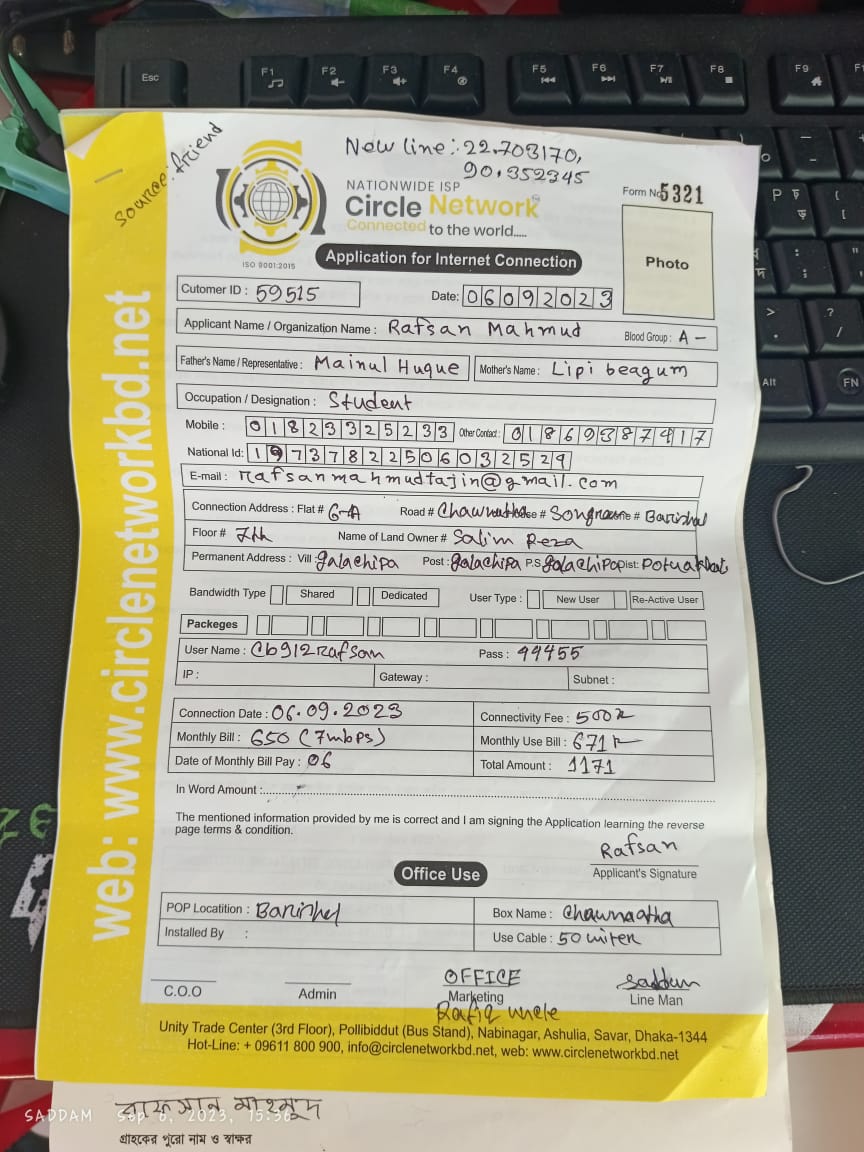 Esc F1 F2 F3 F4 F5 F6 F7 F8 F9
Source: friend
New line: 22.703170,
90.352345
NATIONWIDE ISP
Circle Network
Connected to the world.....
ISO 9001:2015
Form No 5321
Photo
Application for Internet Connection
Cutomer ID : 59515
Date: 06092023
Applicant Name / Organization Name : Rafsan Mahmud Blood Group : A-
Father's Name / Representative : Mainul Huque Mother's Name : Lipi beagum
Occupation / Designation : Student
Mobile : 01823325233 Other Contact : 01869387417
National Id: 19737822506032529
E-mail : rafsanmahmudtajin@gmail.com
Connection Address : Flat # 6-A Road # Barishal
Floor # 7th Name of Land Owner # Salim Reza
Permanent Address : Vill : galachipa Post : galachipa P.S galachipa Dist:
Bandwidth Type Shared Dedicated User Type : New User Re-Active User
Packeges
User Name : Cb912Rafsan Pass : 99455
IP : Gateway : Subnet :
Connection Date : 06.09.2023 Connectivity Fee : 500
Monthly Bill : 650 (7mbps) Monthly Use Bill : 671
Date of Monthly Bill Pay : 06 Total Amount : 1171
In Word Amount :
The mentioned information provided by me is correct and I am signing the Application learning the reverse
page terms & condition.
Rafsan
Applicant's Signature
Office Use
POP Locatition : Barishal Box Name : Chawnaatha
Installed By : Use Cable : 50 miter
OFFICE Saddam
C.O.O Admin Marketing Line Man
Rafiq uncle
Unity Trade Center (3rd Floor), Pollibiddut (Bus Stand), Nabinagar, Ashulia, Savar, Dhaka-1344
Hot-Line: + 09611 800 900, info@circlenetworkbd.net, web: www.circlenetworkbd.net
web: www.circlenetworkbd.net
রাফসান মাহমুদ
SADDAM Sep 6, 2023, 15:36
গ্রাহকের পুরো নাম ও স্বাক্ষর
Alt FN